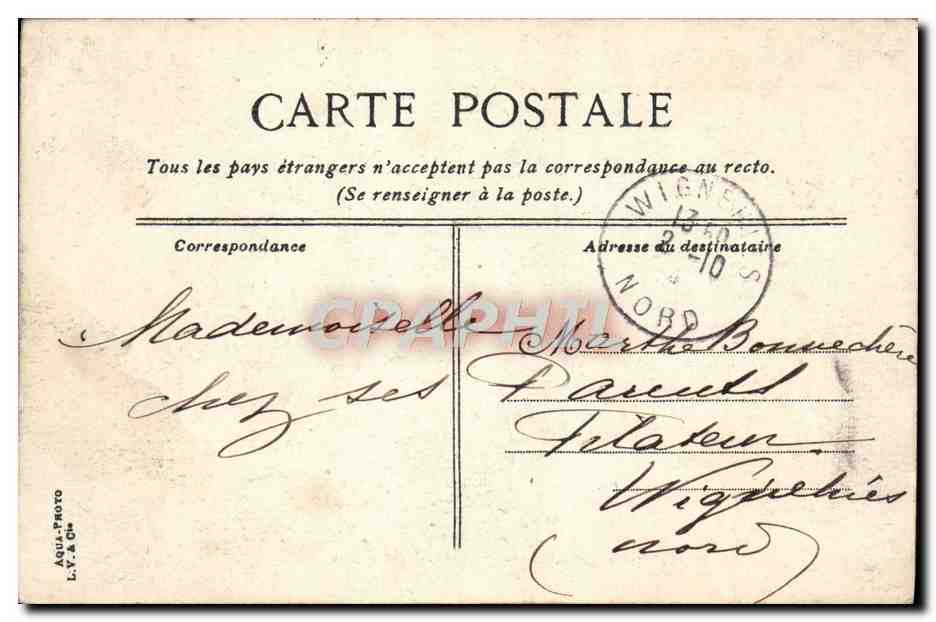 CARTE POSTALE
Tous les pays étrangers n'acceptent pas la correspondance au recto.
(Se renseigner à la poste.)
Correspondance
Adresse du destinataire
WIGNEHIES
13 50
2 -10
NORD
CPARAMA
Mademoiselle Marthe Bonnechère
chez ses Parents
Filateur
Wignehies
(nord)
AQUA-PHOTO
L.V. & Cie